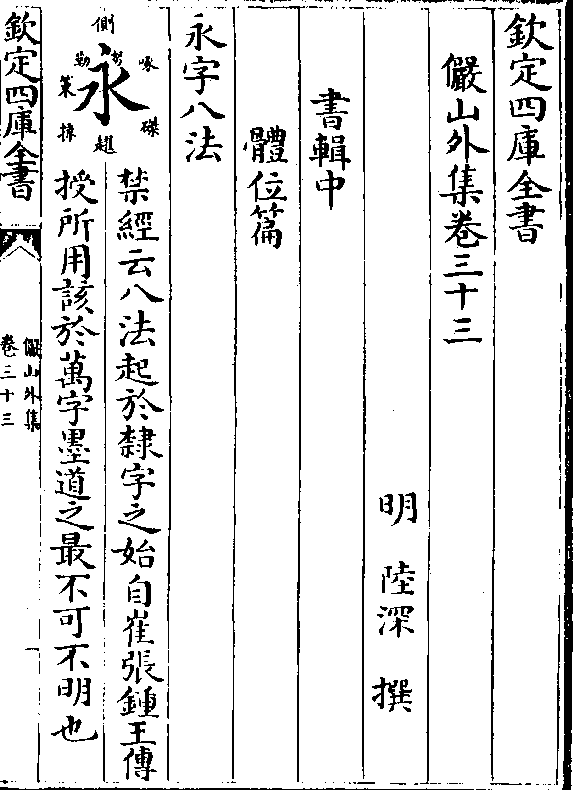 欽定四庫全書
儼山外集卷三十三
明 陸深 撰
書輯中
體位篇
永字八法
禁經云八法起於隸字之始自崔張鍾王傳
側
勒
努
啄
策
永
磔
掠
趯
授所用該於萬字墨道之最不可不明也
欽定四庫全書
儼山外集
卷三十三
一